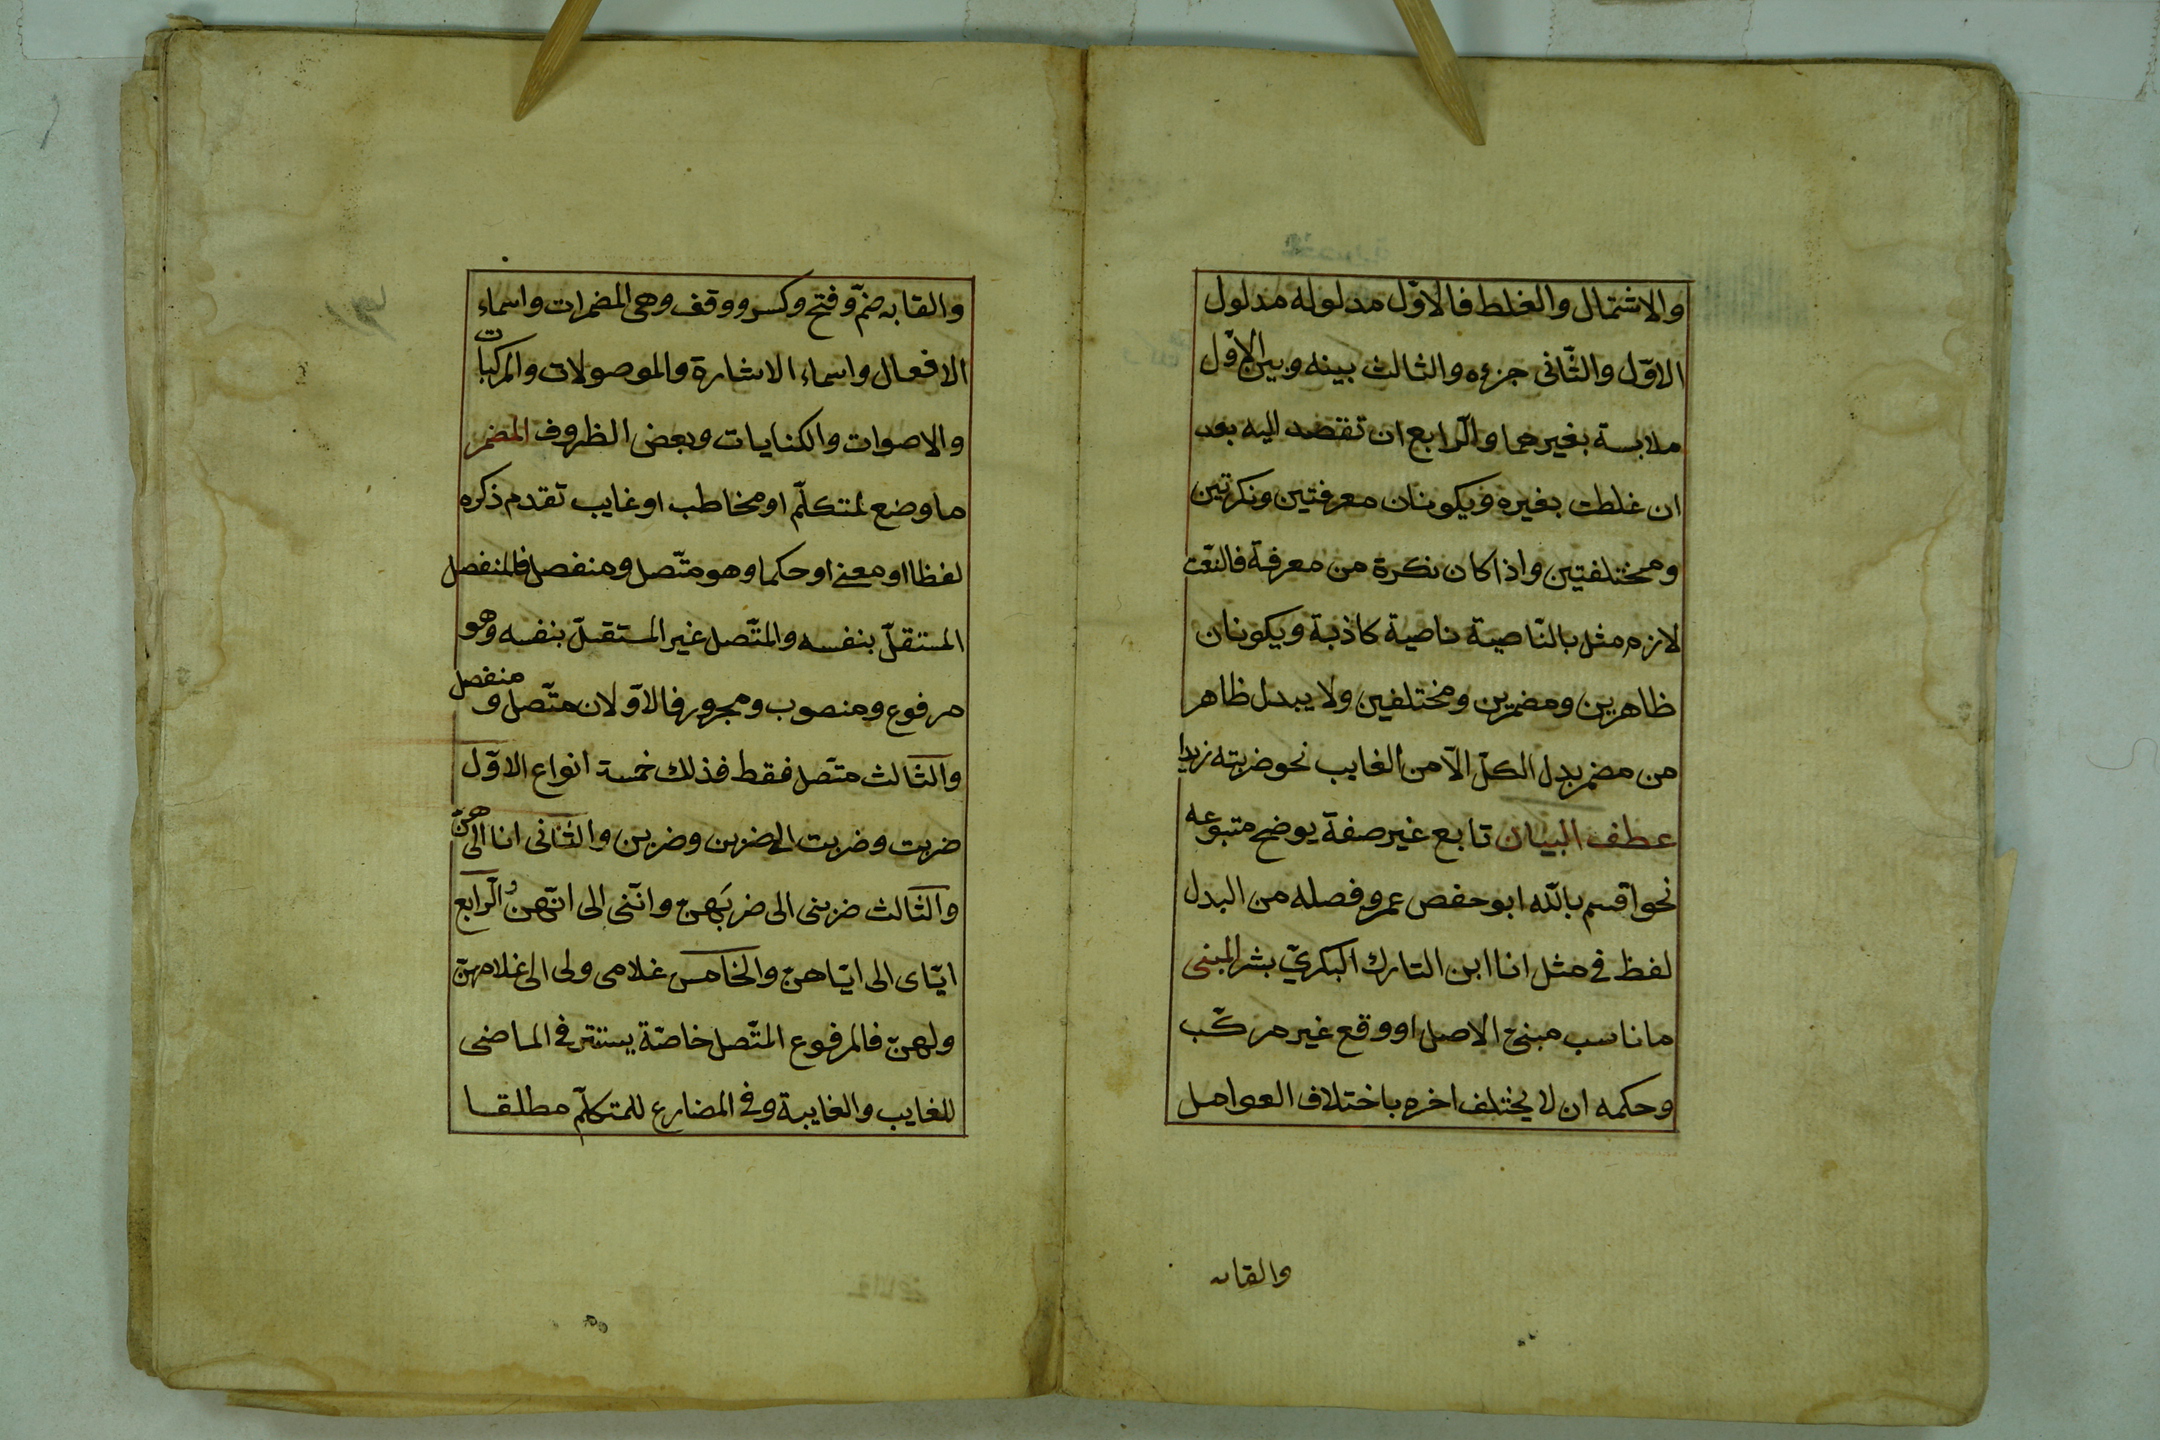 والاشتمال والغلط فالاوّل مدلوله مدلول
الاوّل والثّانى جزءه والثالث بينه وبين الاوّل
ملابسة بغيرهما والرّابع ان تقصد اليه بعد
ان غلطت بغيره ويكونان معرفتين ونكرتين
ومختلفتين واذا كان نكرة من معرفة فالنّعت
لازم مثل بالنّاصية ناصية كاذبة ويكونان
ظاهرين ومضمرين ومختلفين ولا يبدل ظاهر
من مضمر بدل الكلّ الّا من الغايب نحو ضربته زيدا
عطف البيان تابع غير صفة يوضح متبوعه
نحو اقسم بالله ابو حفص عمر وفصله من البدل
لفظ فى مثل انا ابن التارك البكريّ بشر المبنى
ما ناسب مبنىّ الاصل او وقع غير مركّب
وحكمه ان لا يختلف اخره باختلاف العوامل
والقابه
والقابه ضمّ وفتح وكسر ووقف وهى المضمرات واسماء
الافعال واسماء الاشارة والموصولات والمركبات
والاصوات والكنايات وبعض الظروف المضمر
ما وضع لمتكلّم او مخاطب او غايب تقدم ذكره
لفظا او معنى او حكما وهو متّصل ومنفصل فالمنفصل
المستقلّ بنفسه والمتّصل غير المستقلّ بنفسه وهو
مرفوع ومنصوب ومجرور فالاوّلان متّصل ومنفصل
والثّالث متّصل فقط فذلك خمسة انواع الاوّل
ضربت وضربت الى ضربن وضربن والثّانى انا الى هنّ
والثّالث ضربنى الى ضربهنّ وانّنى الى انّهنّ والرّابع
ايّاى الى ايّاهنّ والخامس غلامى ولى الى غلامهنّ
ولهنّ فالمرفوع المتّصل خاصّة يستتر فى الماضى
للغايب والغايبة وفى المضارع للمتكلّم مطلقا